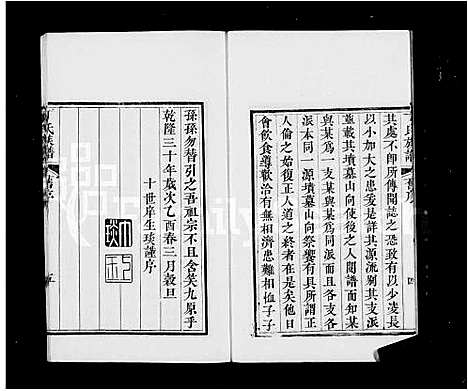 丁氏族譜
舊序
四
其處不即所傳聞誌之恐致有少凌長
小加大之患爰是詳其源流別其支派
並載其墳墓山向使後之人閱譜而知某
與某爲一支某與某爲一派而且各支各
派本同一源墳墓山向祭饗有具所謂正
人倫之始復正人道之終者在是矣他日
會飲食導歡洽有無相濟患難相恤子子
孫孫勿替引之吾祖宗不且含笑九原乎
乾隆三十年歲次乙酉春三月穀旦
十世庠生琰謹序
氏族譜
舊序
五